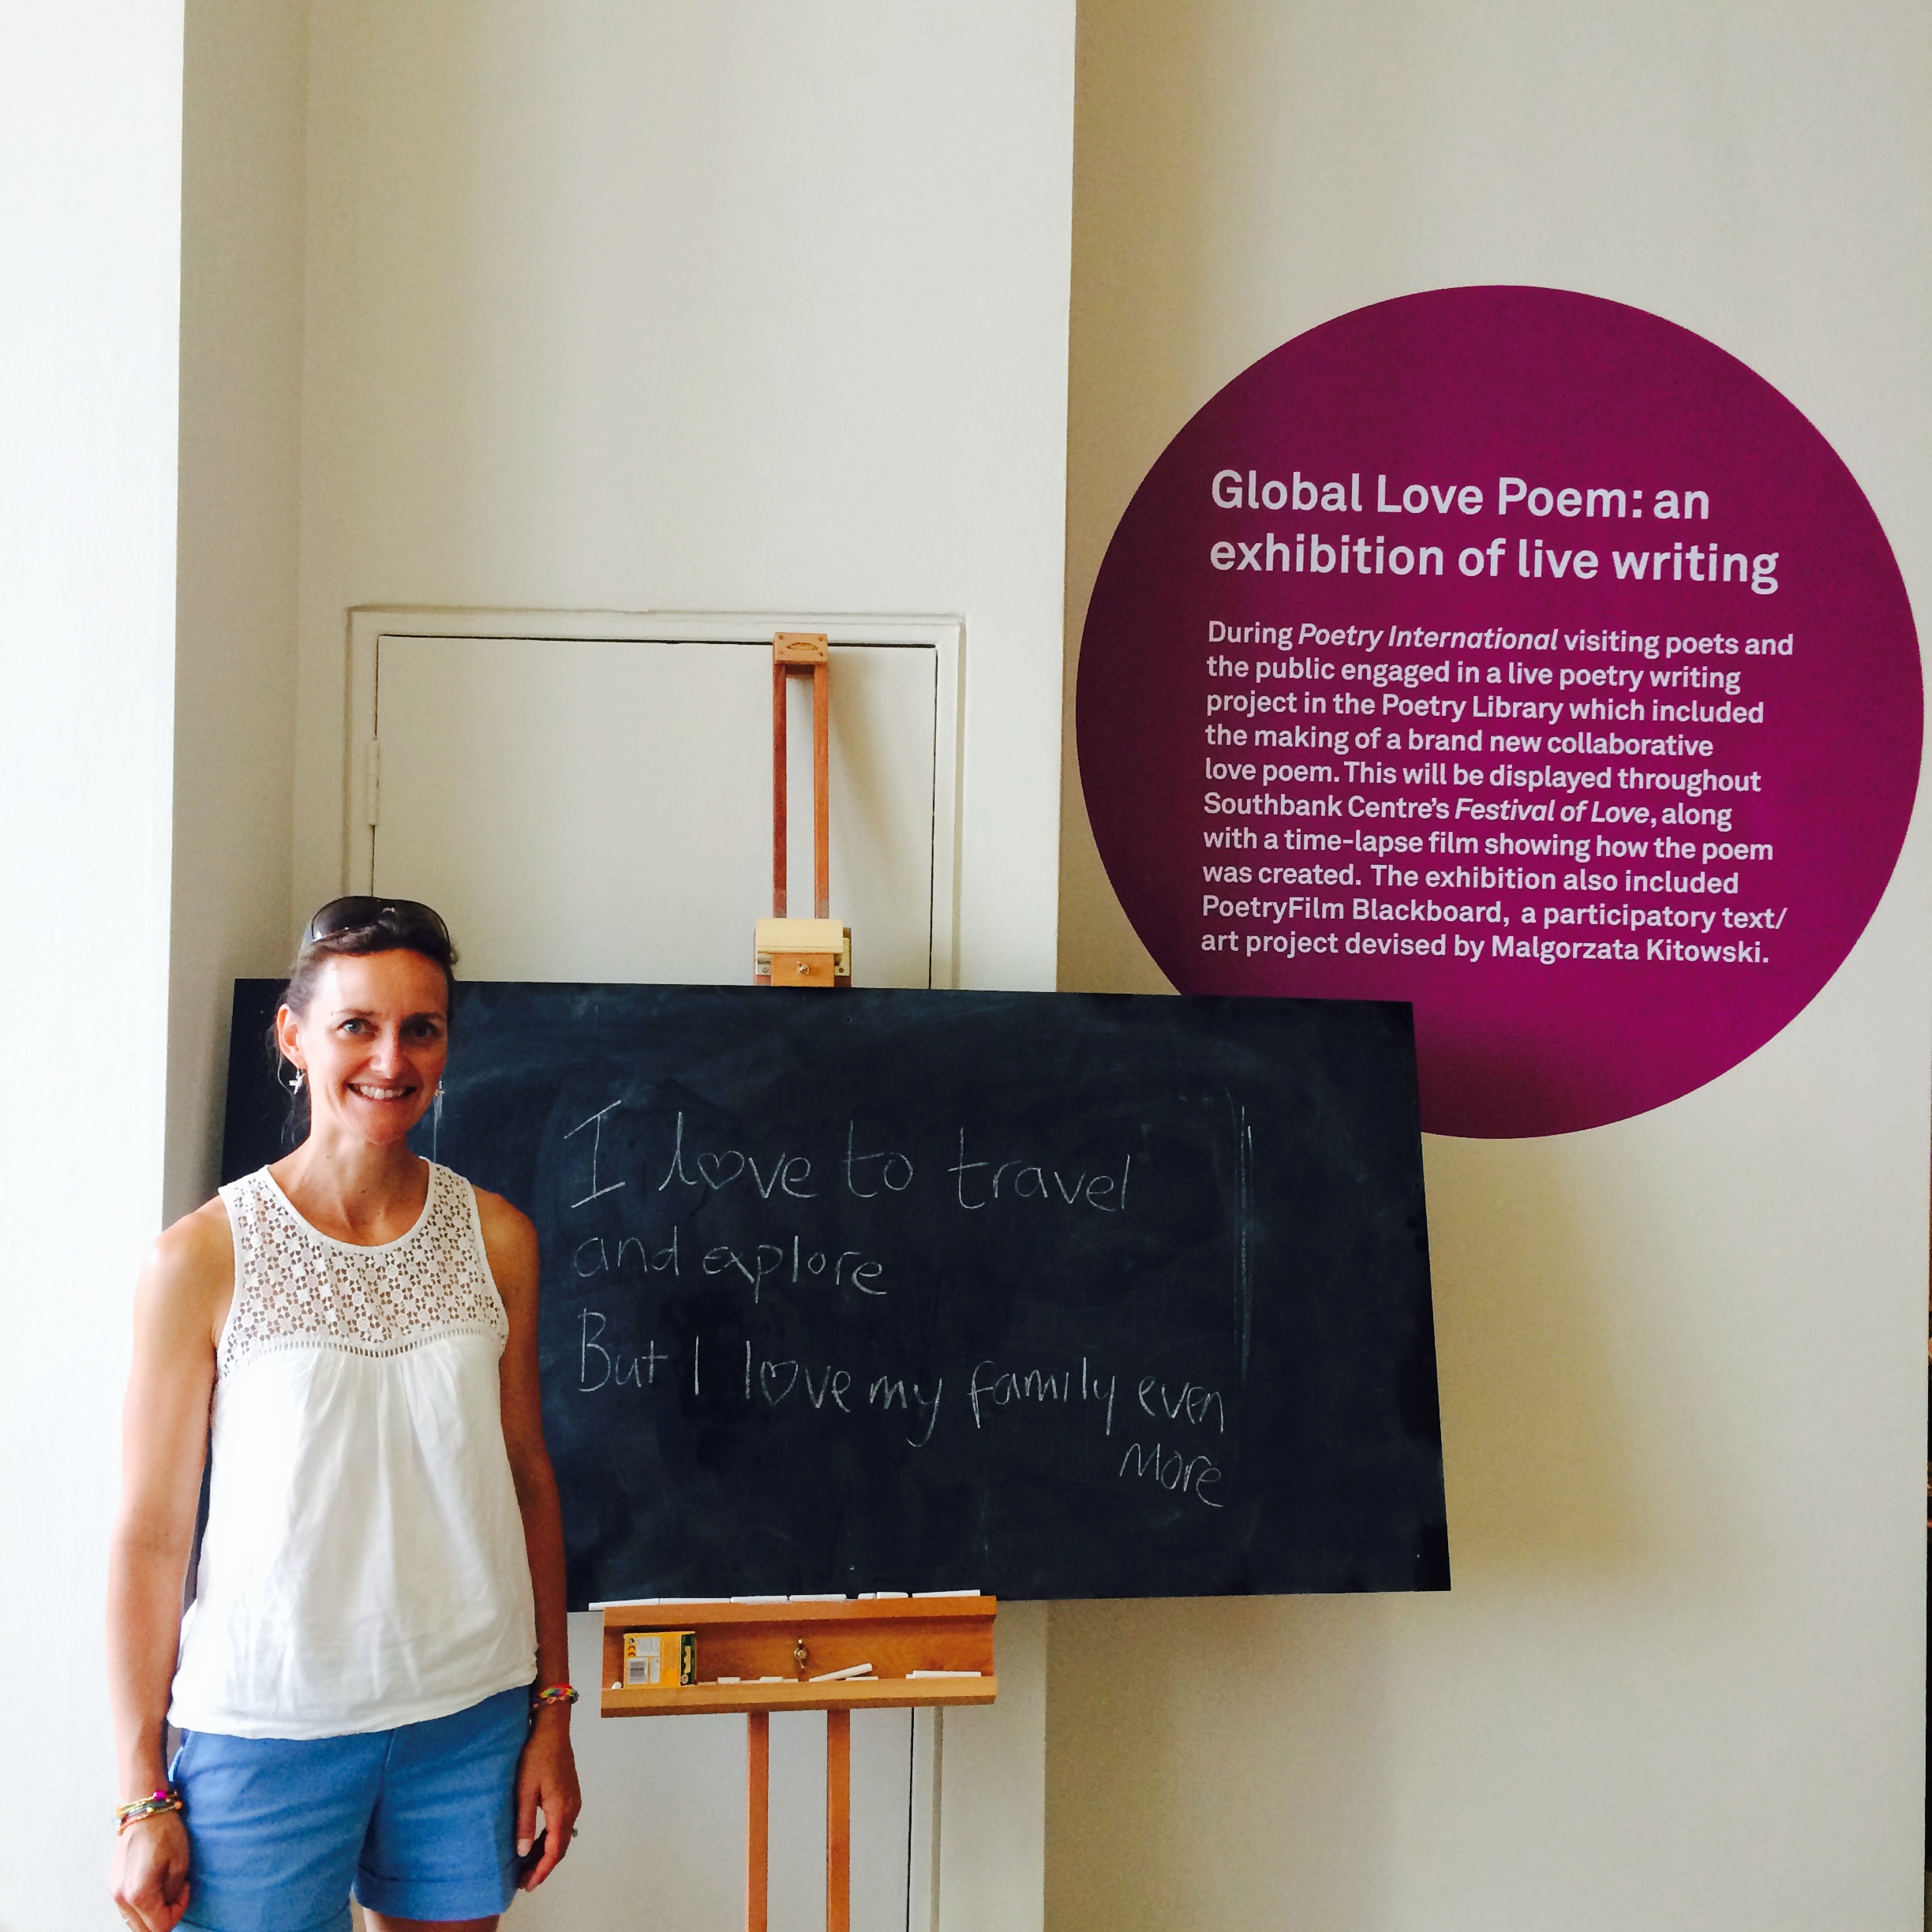 Global Love Poem: an
exhibition of live writing
During Poetry International visiting poets and
the public engaged in a live poetry writing
project in the Poetry Library which included
the making of a brand new collaborative
love poem. This will be displayed throughout
Southbank Centre's Festival of Love, along
with a time-lapse film showing how the poem
was created. The exhibition also included
PoetryFilm Blackboard, a participatory text/
art project devised by Malgorzata Kitowski.
I love to travel
and explore
But I love my family even
more